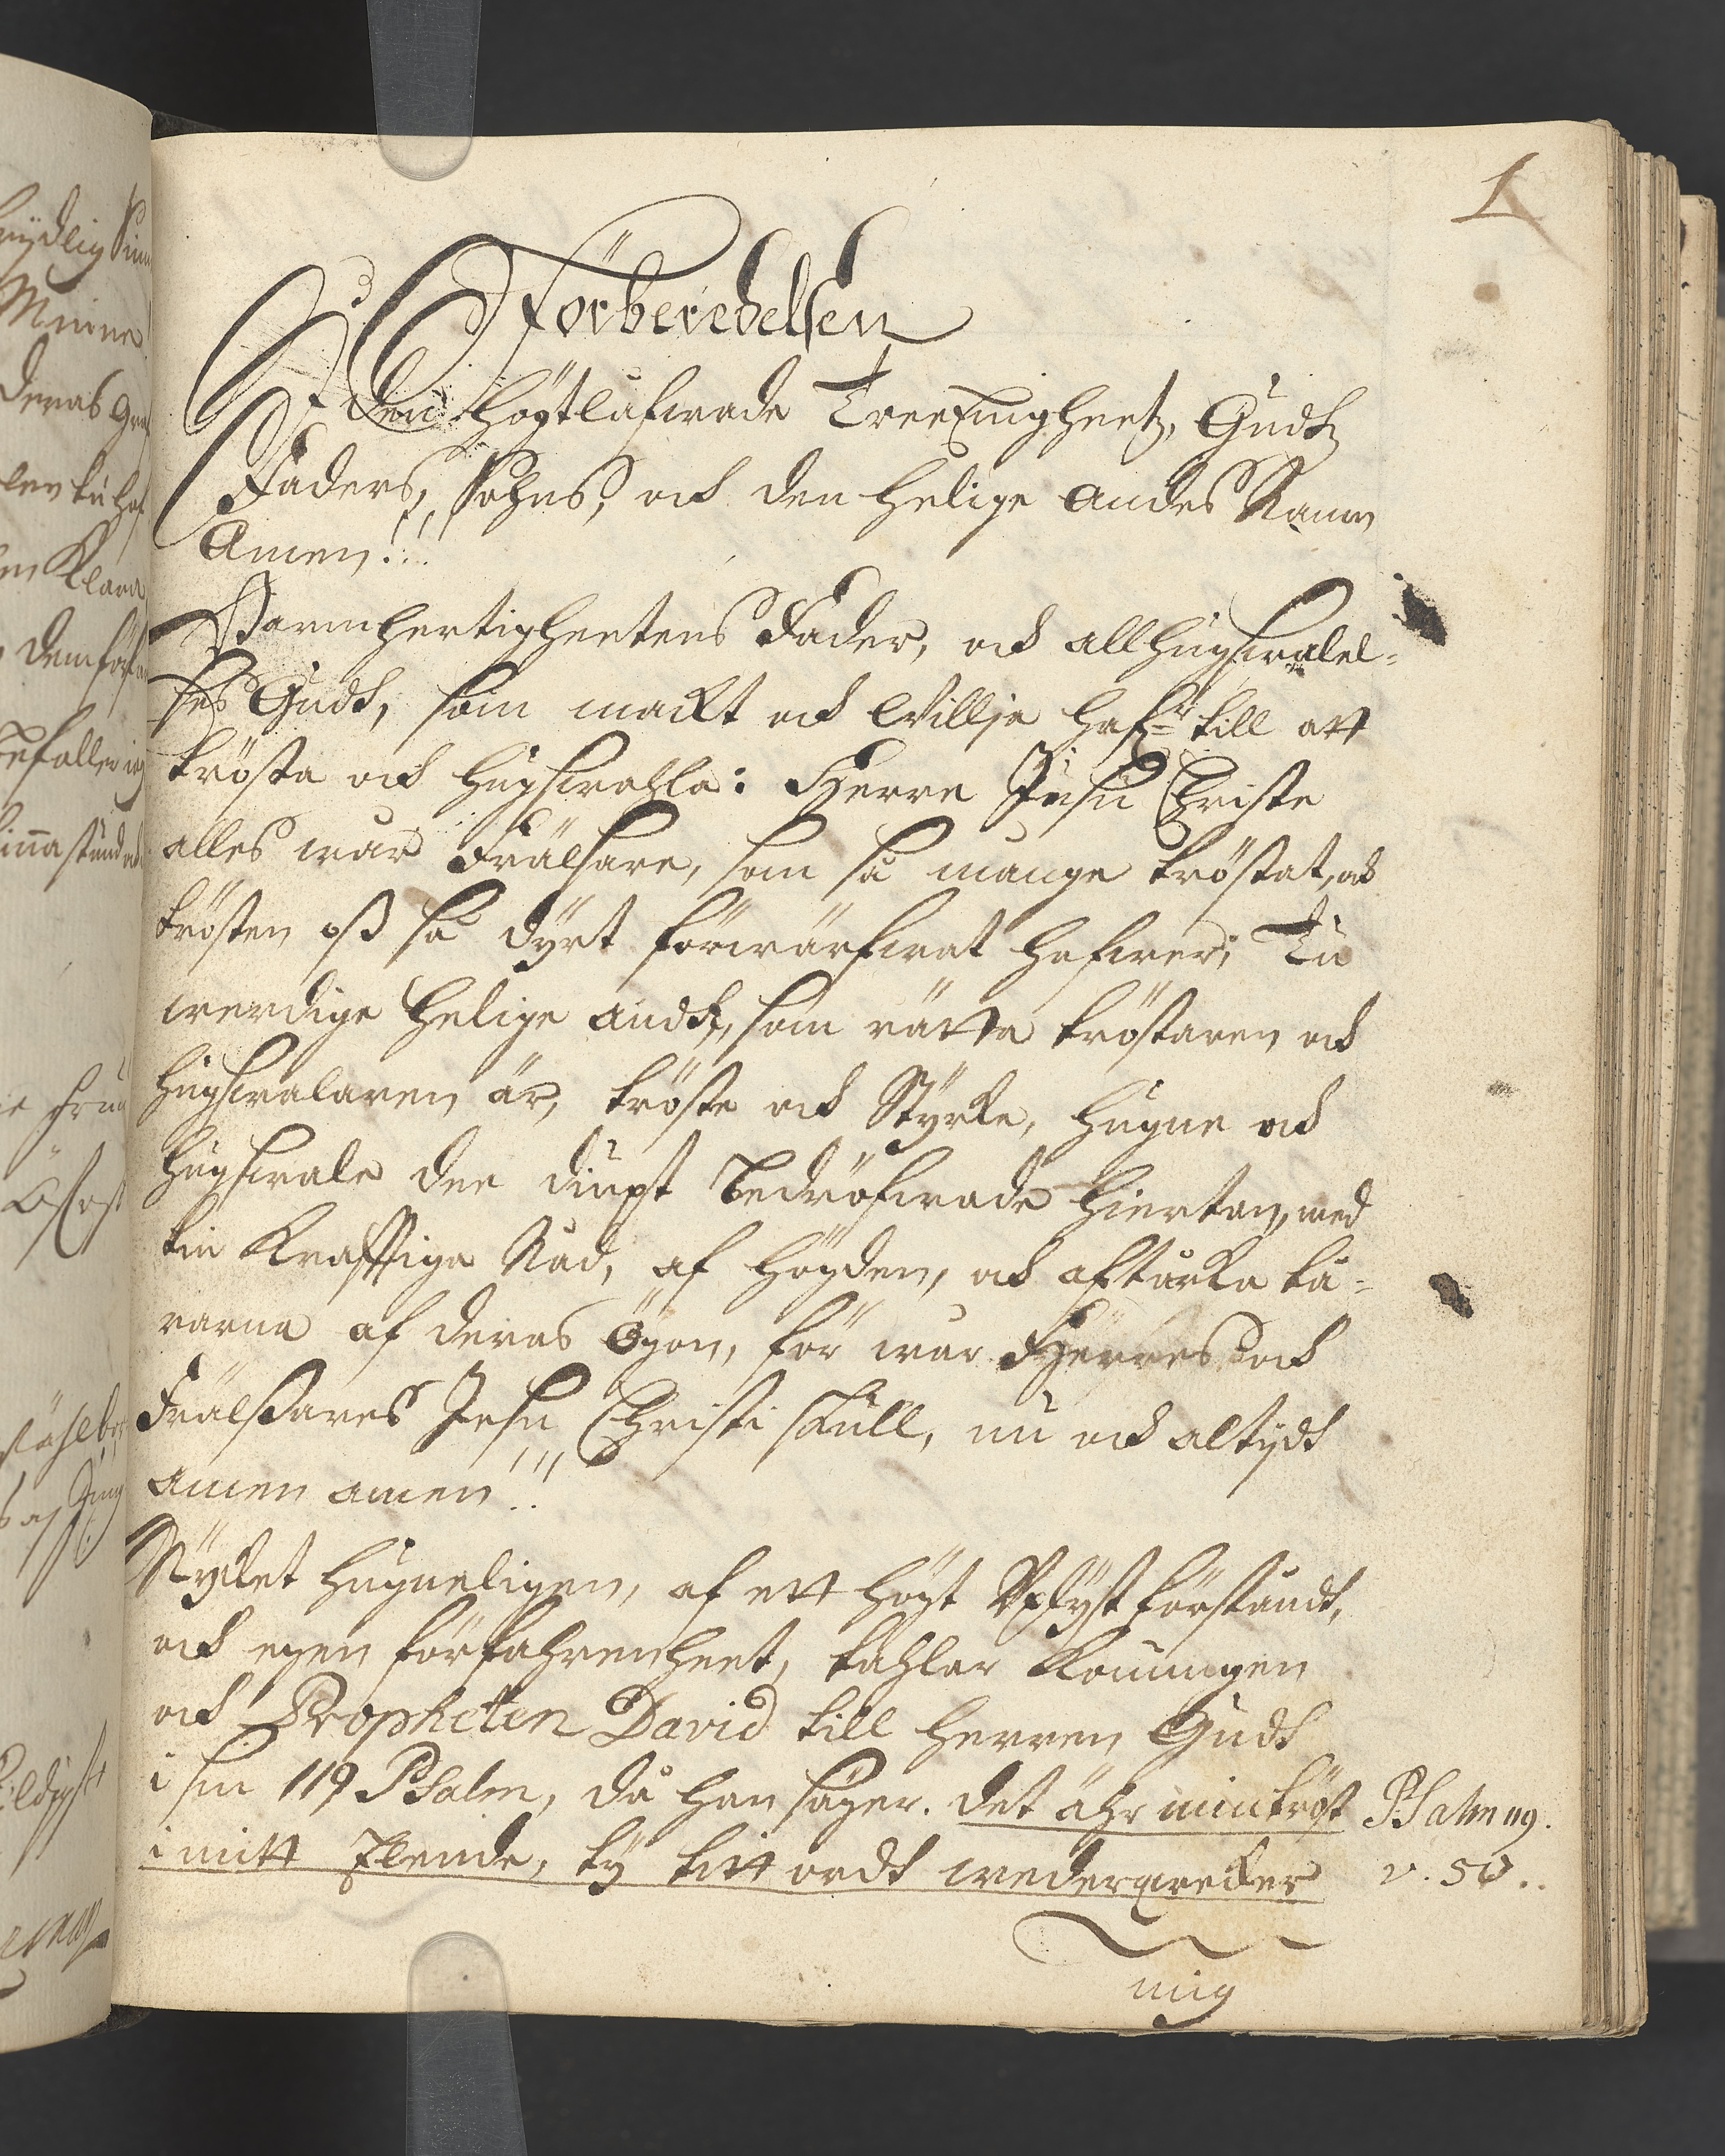 1
Förberedelsen
I Den Högtlåfwade TreeEnigheetz, Gudz
Faders, Sohns, och den Helige Andes Namn
Amen!!!
Barmhertigheetens Fader, och all hugswalel-
ses Gudh, som mackt och Willje haf:r till att
trösta och hugswahla: Herre Jesu Christe
alles wår Frälsare, som så mange tröstat, och
trösten oß så dyrt förwärfwat hafwer; Tu
werdige Helige Andh, som rätta tröstaren och
hugswalaren är, tröste och Styrke, hugne och
hugswale dee diupt Bedröfwade Hiertan, med
tin Krafftiga Nåd, af högden, och aftårka tå-
rarna af deras Ögon, för wår Herres och
Frälßares Jesu Christi skull, nu och altydh
amen amen!!!
Mycket hugneligen, af ett högt Uplyst förståndh,
och egen förfahrenheet, tahlar Konungen
och Propheten David till Herren Gudh
i sin 119 Psalm, då han säger. det ähr min tröst
i mitt Elende, ty titt ordh wederqweker
Psalm 119.
v. 50..
mig